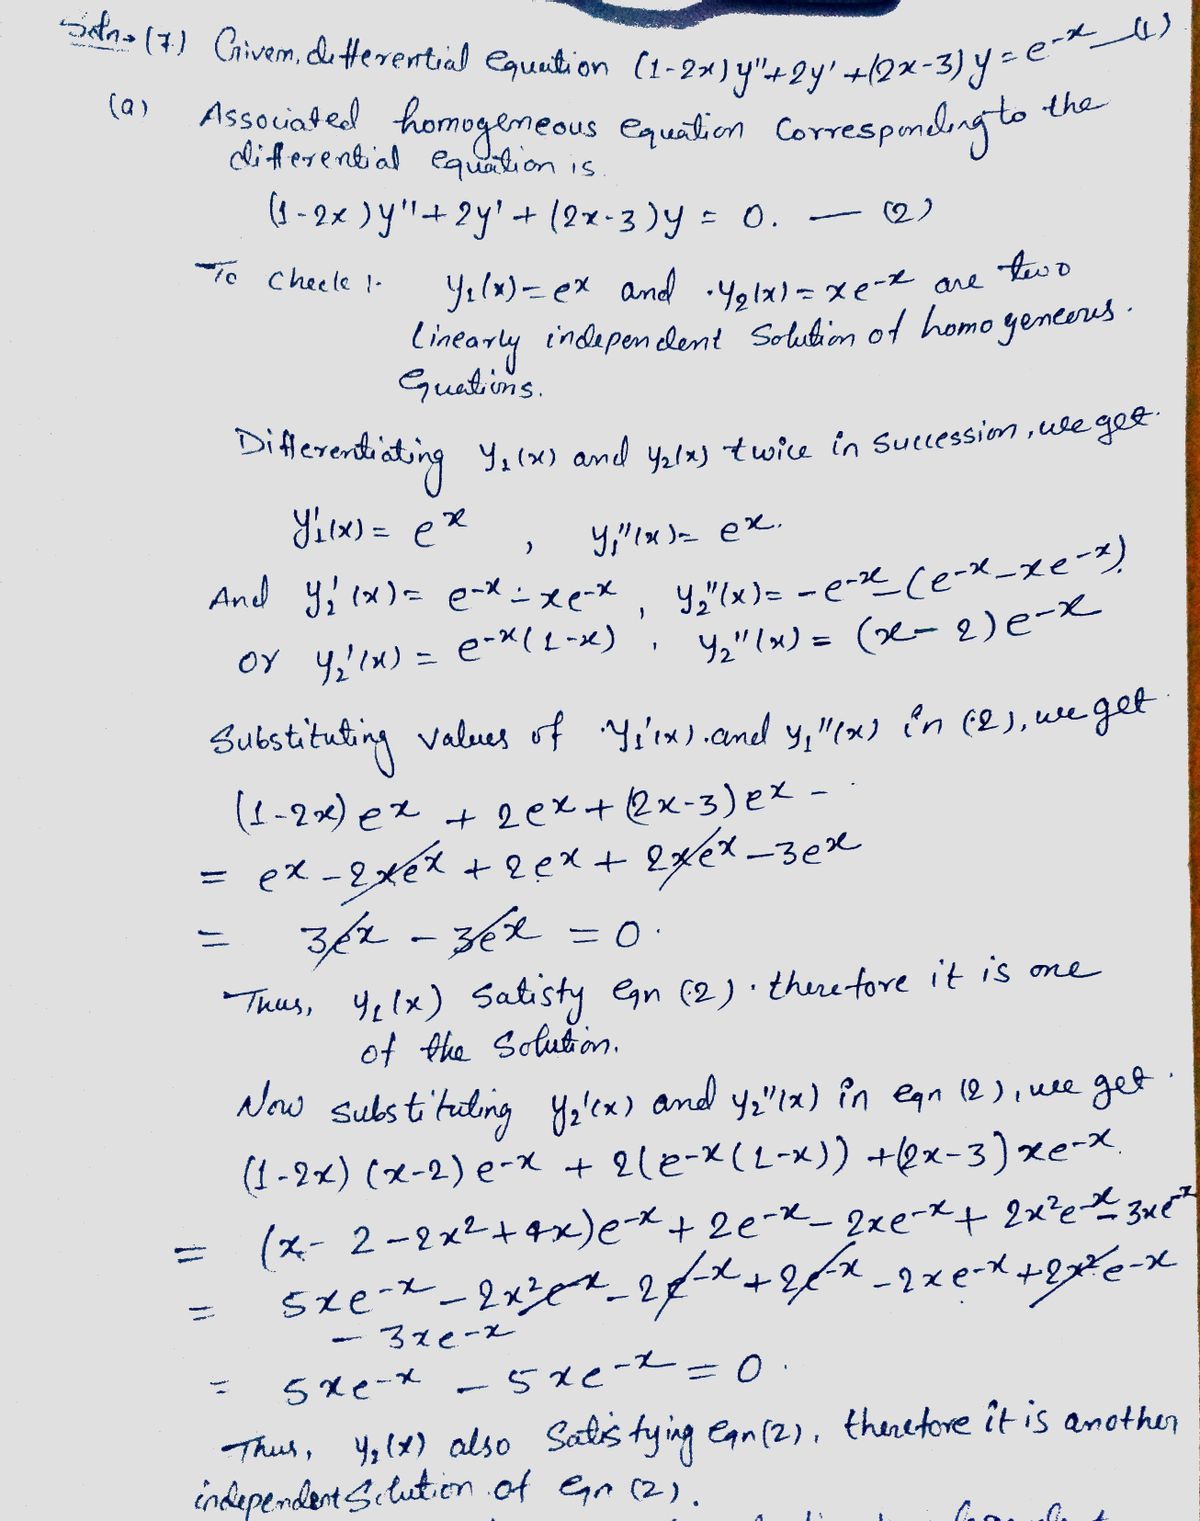 Soln→(7.) Given, differential Equation (1-2x)y"+2y'+(2x-3)y=e^-x —(1)
(a) Associated homogeneous equation Corresponding to the
differential equation is.
(1-2x)y"+2y'+(2x-3)y = 0. — (2)
To Check :- y₁(x)=e^x and y₂(x)=xe^-x are two
linearly independent Solution of homogeneous.
Equations.
Differentiating y₁(x) and y₂(x) twice in Succession, we get.
y₁'(x)= e^x , y₁"(x)= e^x.
And y₂'(x)= e^-x - xe^-x , y₂"(x)= -e^-x-(e^-x-xe^-x).
or y₂'(x) = e^-x(1-x) , y₂"(x) = (x-2)e^-x
Substituting values of y₁'(x).and y₁"(x) in (2), we get
(1-2x)e^x + 2e^x+(2x-3)e^x -
= e^x -2xe^x +2e^x+ 2xe^x-3e^x
= 3e^x - 3e^x = 0.
Thus, y₁(x) Satisfy eqn (2). therefore it is one
of the Solution.
Now substituting y₂'(x) and y₂"(x) in eqn (2), we get.
(1-2x)(x-2)e^-x + 2(e^-x(1-x)) +(2x-3)xe^-x.
= (x-2-2x²+4x)e^-x+2e^-x-2xe^-x+2x²e^-x-3xe^-x
= 5xe^-x-2x²e^-x-2e^-x+2e^-x-2xe^-x+2x²e^-x
-3xe^-x
= 5xe^-x -5xe^-x=0.
Thus, y₂(x) also Satisfying eqn(2), therefore it is another
independent Solution of eqn (2).